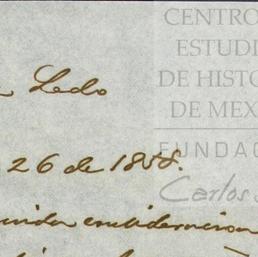 CENTRO
ESTUDI
DE HISTO
DE MEX
FUNDAC
Carlos S
Ledo
26 de 1858.
consideracion